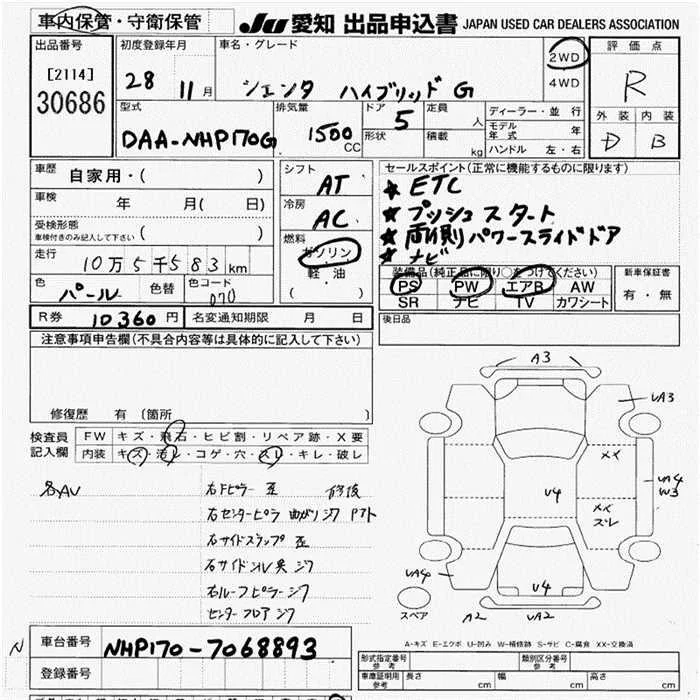 車内保管・守衛保管
JU 愛知 出品申込書 JAPAN USED CAR DEALERS ASSOCIATION
出品番号
[2114]
30686
初度登録年月
28 11月
車名・グレード
シエンタ ハイブリッド G
2WD
4WD
評価点
R
外装 内装
D B
型式
DAA-NHP170G
排気量
1500
CC
ドア
5
形状
定員
人
積載
kg
ディーラー・並行
モデル年式 年
ハンドル 左・右
車歴 自家用・( )
車検 年 月( 日)
受検形態
車検付きのみ記入して下さい ( )
走行
10万5千583km
色 パール 色替 色コード 070
シフト
AT
冷房
AC
燃料
ガソリン
軽・油
( )
セールスポイント(正常に機能するものに限ります)
★ ETC
★ プッシュスタート
★ 両側パワースライドドア
★ ナビ
装備品(純正品に限り○をつけてください)
PS PW エアB AW
SR ナビ TV カワシート
新車保証書
有・無
R券 10360円 名変通知期限 月 日
後日品
注意事項申告欄(不具合内容等は具体的に記入して下さい)
修復歴 有 〔箇所 〕
検査員記入欄
FW キズ・飛石・ヒビ割・リペア跡・X要
内装 キズ・汚レ・コゲ・穴・スレ・キレ・破レ
右Fピラー 歪 修後
右センターピラ 曲がりジワ
右サイドステップ 歪
右サイド
右ルーフピラージワ
センターフロアジワ
A3
UA3
××
U4
UA4
W3
××
スレ
UA4
U4
A2
UA2
スペア
A-キズ E-エクボ U-凹み W-補修跡 S-サビ C-腐食 XX-交換済
N
車台番号 NHP170-7068893
登録番号
形式指定番号
参考
類別区分番号
参考
車庫証明用
参考
長さ cm 幅 cm 高さ cm